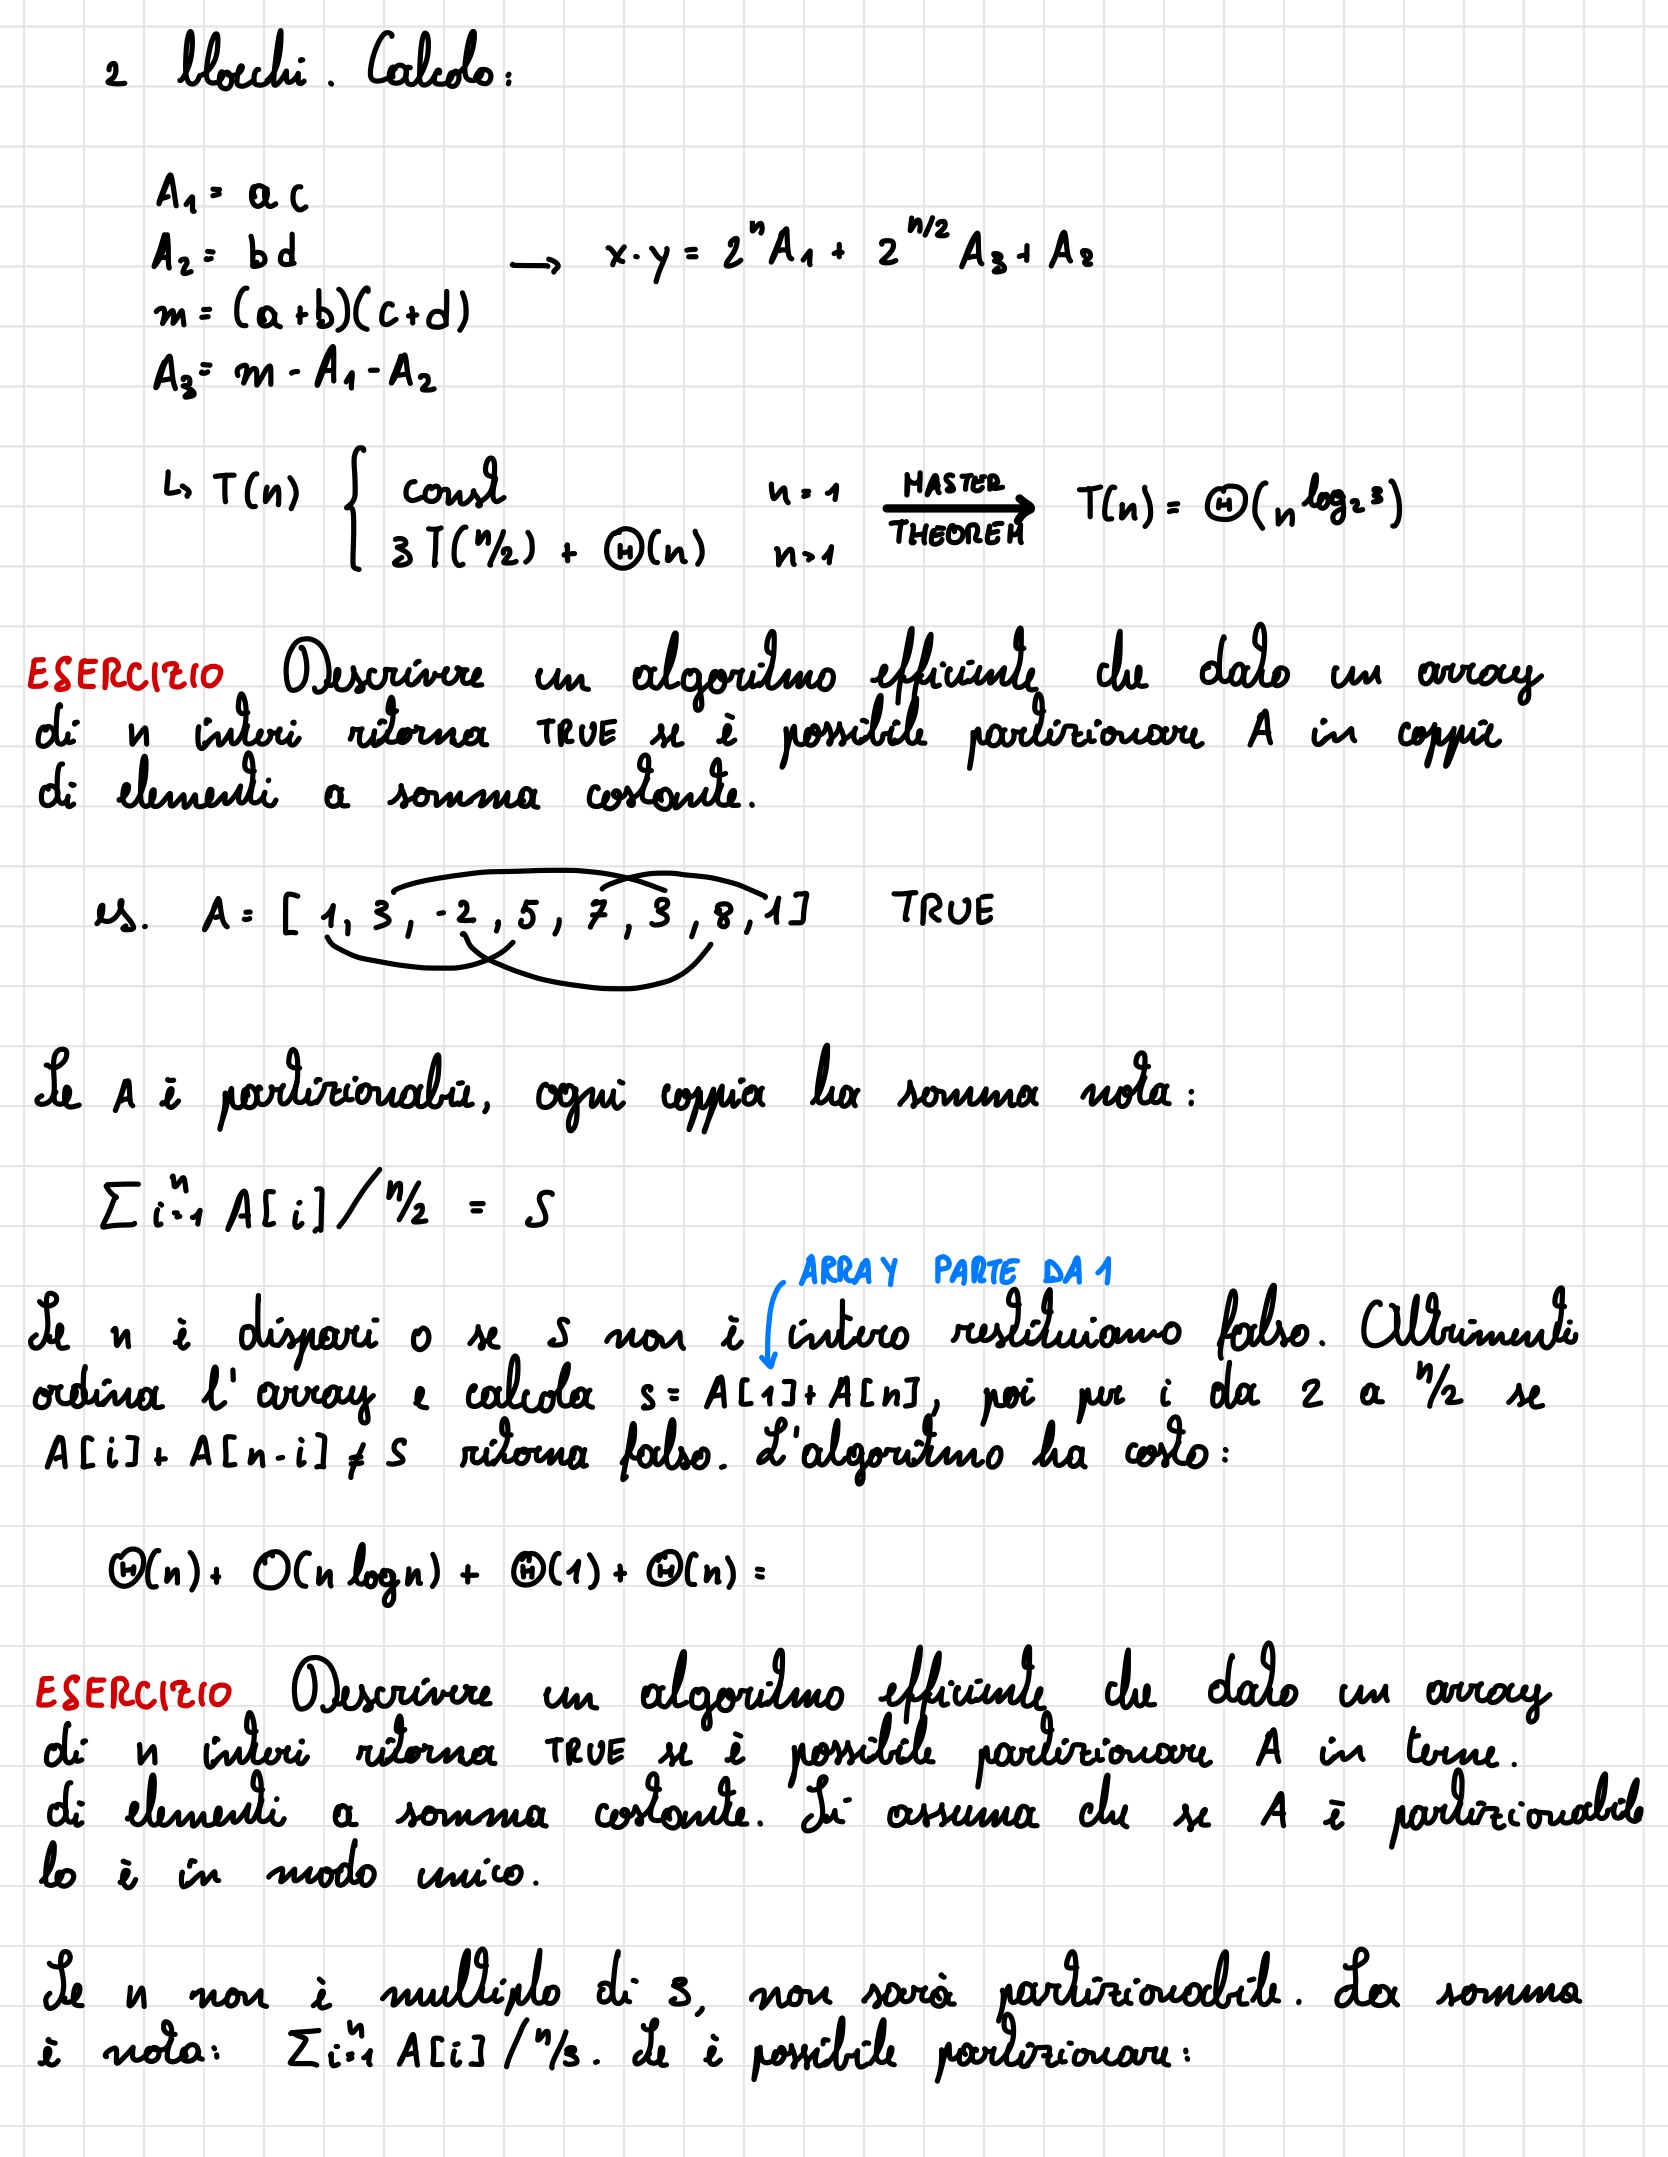 2 blocchi. Calcolo:
A₁ = a c
A₂ = b d → x·y = 2ⁿA₁ + 2^{n/2} A₃ + A₂
m = (a+b)(c+d)
A₃ = m - A₁ - A₂
↳ T(n) { const n=1 MASTER THEOREM → T(n) = Θ(n^{log₂3})
3T(n/2) + Θ(n) n>1
ESERCIZIO Descrivere un algoritmo efficiente che dato un array
di n interi ritorna TRUE se è possibile partizionare A in coppie
di elementi a somma costante.
es. A = [1, 3, -2, 5, 7, 3, 8, 1] TRUE
Se A è partizionabile, ogni coppia ha somma nota:
∑ i=1 n A[i] / n/2 = S
ARRAY PARTE DA 1
Se n è dispari o se S non è intero restituiamo falso. Altrimenti
ordina l'array e calcola s = A[1] + A[n], poi per i da 2 a n/2 se
A[i] + A[n-i] ≠ S ritorna falso. L'algoritmo ha costo:
Θ(n) + O(n log n) + Θ(1) + Θ(n) =
ESERCIZIO Descrivere un algoritmo efficiente che dato un array
di n interi ritorna TRUE se è possibile partizionare A in terne.
di elementi a somma costante. Si assuma che se A è partizionabile
lo è in modo unico.
Se n non è multiplo di 3, non sarà partizionabile. La somma
è nota: ∑ i=1 n A[i] / n/3. Se è possibile partizionare: